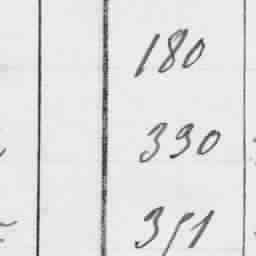 180
330
351